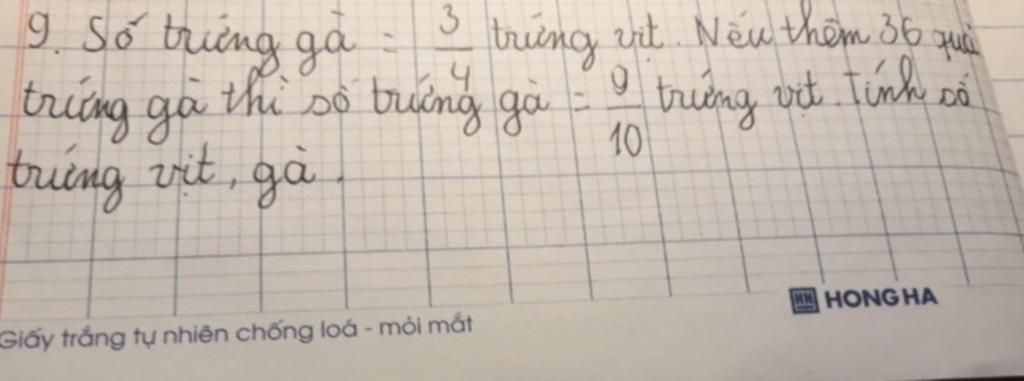 9. Số trứng gà = 3/4 trứng vịt. Nếu thêm 36 quả
trứng gà thì số trứng gà = 9/10 trứng vịt. Tính số
trứng vịt, gà.
HH HONG HA
Giấy trắng tự nhiên chống loá - mỏi mắt